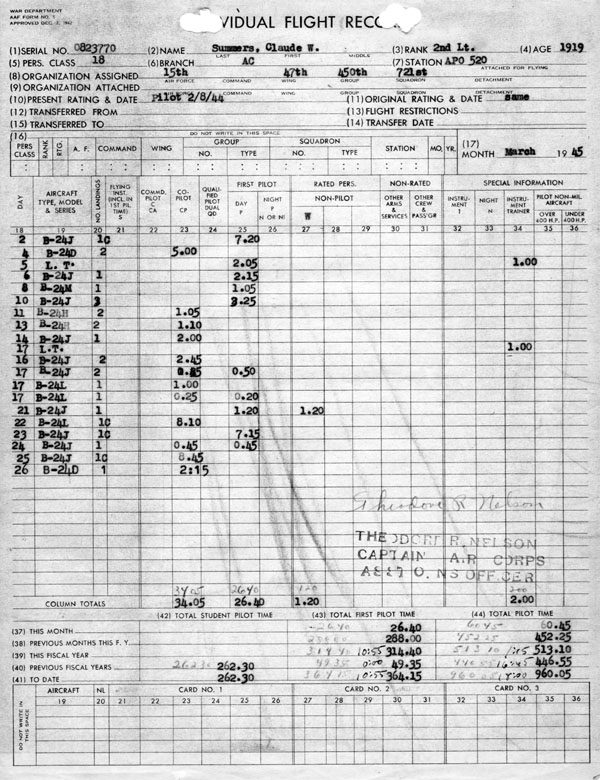 WAR DEPARTMENT
AAF FORM NO. 5
APPROVED DEC. 7, 1942
VIDUAL FLIGHT RECO
(1) SERIAL NO. 0823770 (2) NAME Summers, Claude W. (3) RANK 2nd Lt. (4) AGE 1919
LAST FIRST MIDDLE
(5) PERS. CLASS 18 (6) BRANCH AC (7) STATION APO 520
(8) ORGANIZATION ASSIGNED 15th 47th 450th 721st
AIR FORCE COMMAND WING GROUP SQUADRON DETACHMENT ATTACHED FOR FLYING
(9) ORGANIZATION ATTACHED
AIR FORCE COMMAND WING GROUP SQUADRON DETACHMENT
(10) PRESENT RATING & DATE Pilot 2/8/44 (11) ORIGINAL RATING & DATE same
(12) TRANSFERRED FROM (13) FLIGHT RESTRICTIONS
(15) TRANSFERRED TO (14) TRANSFER DATE
(16) DO NOT WRITE IN THIS SPACE
PERS CLASS RANK RTG. A. F. COMMAND WING GROUP NO. TYPE SQUADRON NO. TYPE STATION MO. YR. (17) MONTH March 1945
DAY AIRCRAFT TYPE, MODEL & SERIES NO. LANDINGS FLYING INST. (INCL. IN 1ST PIL. TIME) S COMMD. PILOT C CA CO-PILOT CP QUALI-FIED PILOT DUAL QD FIRST PILOT DAY P NIGHT P N OR NI RATED PERS. NON-PILOT W NON-RATED OTHER ARMS & SERVICES OTHER CREW & PASS'GR SPECIAL INFORMATION INSTRU-MENT I NIGHT N INSTRU-MENT TRAINER PILOT NON-MIL. AIRCRAFT OVER 400 H.P. UNDER 400 H.P.
18 19 20 21 22 23 24 25 26 27 28 29 30 31 32 33 34 35 36
2 B-24J 10 7.20
4 B-24D 2 5.00
5 L. T. 2.05 1.00
6 B-24J 1 2.15
8 B-24M 1 1.05
10 B-24J 3 3.25
11 B-24H 2 1.05
13 B-24H 2 1.10
14 B-24J 1 2.00
17 L.T. 1.00
16 B-24J 2 2.45
17 B-24J 2 0.50
17 B-24L 1 1.00
17 B-24L 0.25 0.20
21 B-24J 1 1.20 1.20
22 B-24L 10 8.10
23 B-24J 10 7.15
24 B-24J 1 0.45 0.45
25 B-24J 10 8.45
26 B-24D 1 2:15
Theodore R Nelson
THEODORE R. NELSON
CAPTAIN AIR CORPS
ASST O. NS OFFICER
3405 2640 1.20 2.00
COLUMN TOTALS 34.05 26.40 1.20 2.00
(42) TOTAL STUDENT PILOT TIME (43) TOTAL FIRST PILOT TIME (44) TOTAL PILOT TIME
(37) THIS MONTH 2640 26.40 6045 60.45
(38) PREVIOUS MONTHS THIS F. Y. 28800 288.00 45225 452.25
(39) THIS FISCAL YEAR 31440 10:55 314.40 513 10 513.10
(40) PREVIOUS FISCAL YEARS 26230 262.30 49.35 0:00 49.35 446.55
(41) TO DATE 262.30 36415 10:55 364.15 960.05
AIRCRAFT NL CARD NO. 1 CARD NO. 2 CARD NO. 3
19 20 21 22 23 24 25 26 27 28 29 30 31 32 33 34 35 36
DO NOT WRITE IN THIS SPACE